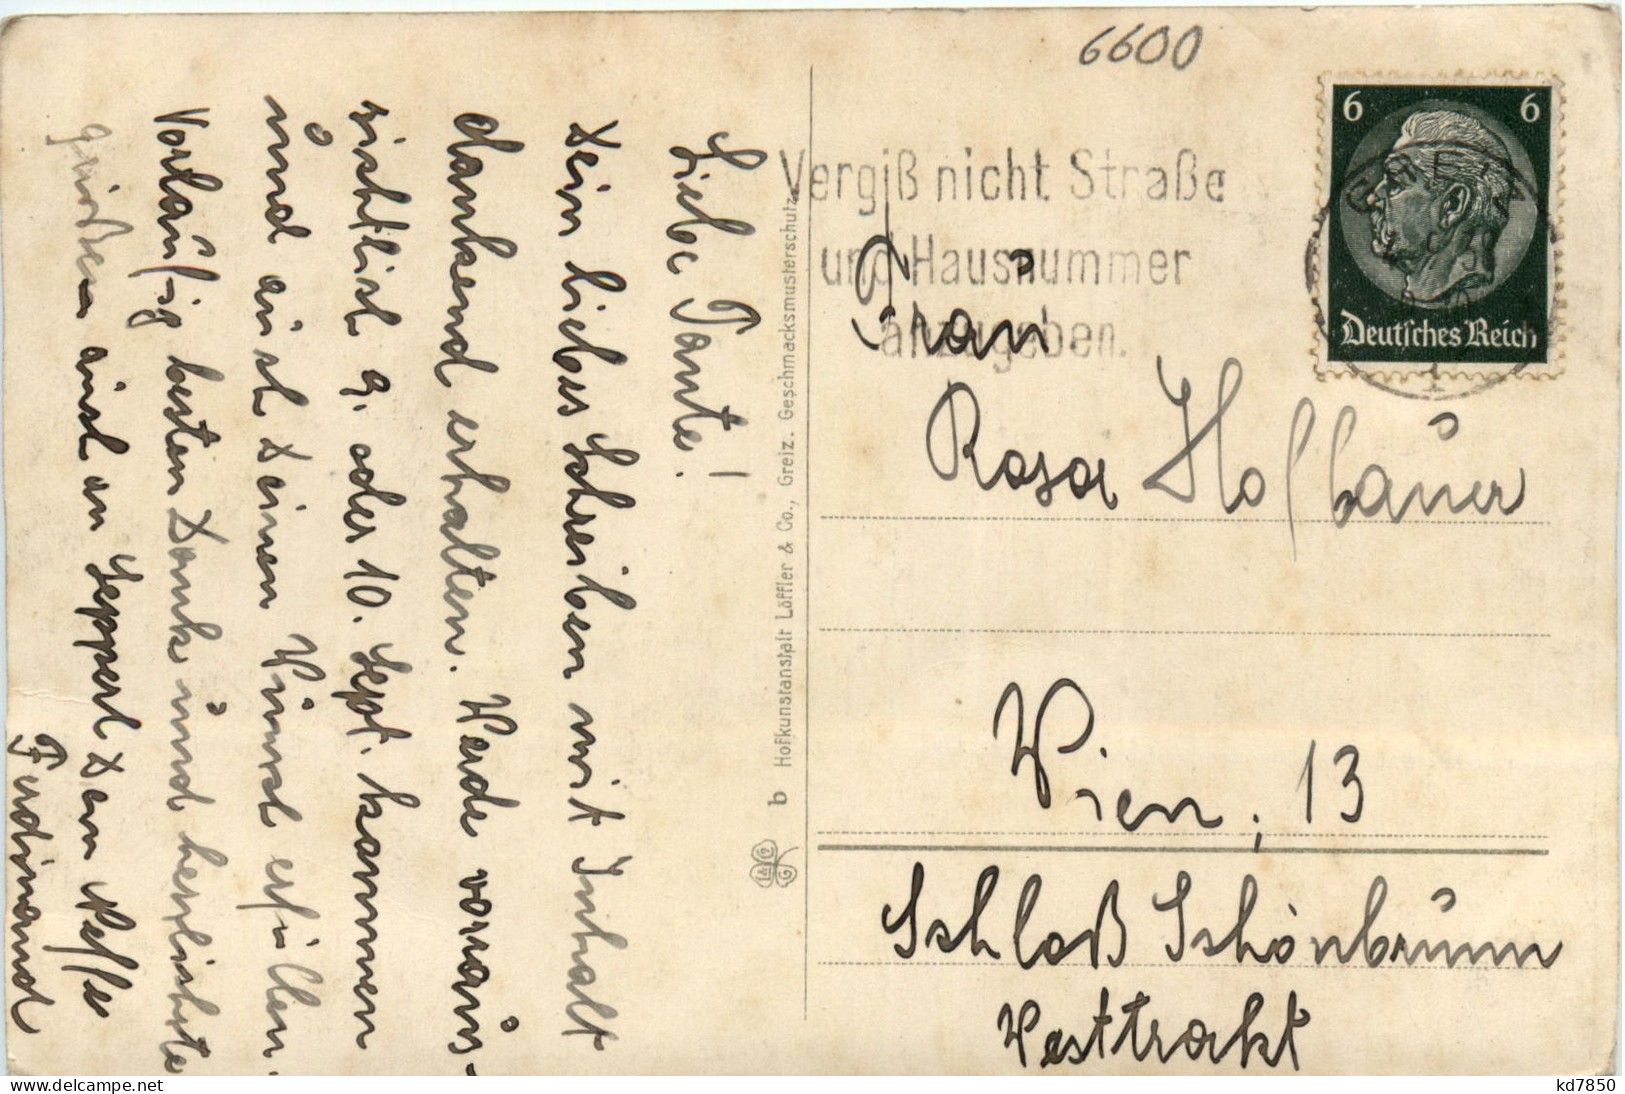 6600
6 6
Deutsches Reich
GREIZ
Vergiß nicht Straße
und Hausnummer
anzugeben.
Frau
Rosa Hofbauer
Wien, 13
Schloß Schönbrunn
Westtrakt
Liebe Tante!
Dein liebes Schreiben mit Inhalt
dankend erhalten. Werde voraus-
sichtlich 9. oder 10. Sept. kommen
und auch Deinen Wunsch erfüllen.
Vorläufig besten Dank und herzlichste
auch an Sepperl Dein Neffe
Ferdinand
b Hofkunstanstalt Löffler & Co., Greiz. Geschmacksmusterschutz.
kd7850
www.delcampe.net